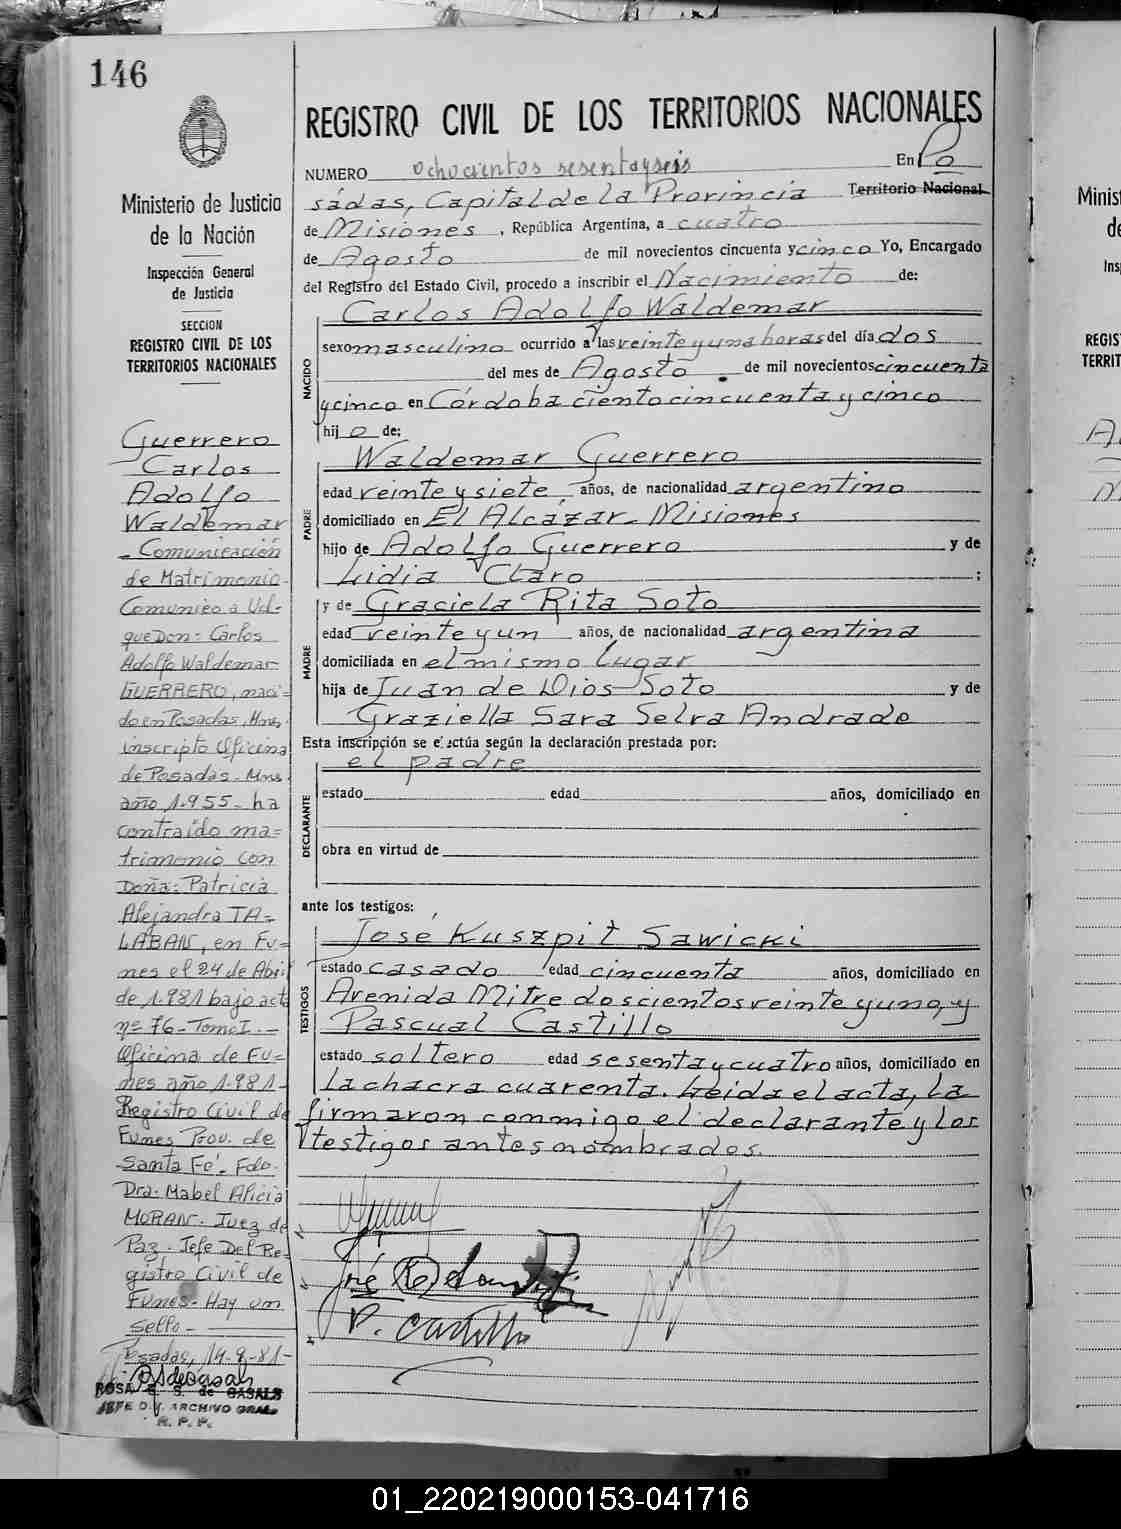 146
Ministerio de Justicia
de la Nación
Inspección General
de Justicia
SECCION
REGISTRO CIVIL DE LOS
TERRITORIOS NACIONALES
Guerrero
Carlos
Adolfo
Waldemar
- Comunicación
de Matrimonio.
Comunico a Ud-
que Don: Carlos
Adolfo Waldemar
GUERRERO, naci=
do en Posadas, Mnes,
inscripto Oficina
de Posadas- Mnes.
año 1.955- ha
contraído ma=
trimonio con
Doña: Patricia
Alejandra TA=
LABAN, en Fu=
nes el 24 de Abril
de 1.981 bajo acta
nº 76- Tomo I.-
Oficina de Fu=
nes año 1.981-
Registro Civil de
Funes Prov. de
Santa Fé- Fdo.
Dra. Mabel Alicia
MORAN- Juez de
Paz- Jefe Del Re-
gistro Civil de
Funes- Hay un
Sello-
Posadas, 19-8-81-
ROSA E. S. de CASALS
JEFE DIV. ARCHIVO GRAL.
R. P. P.
REGISTRO CIVIL DE LOS TERRITORIOS NACIONALES
NUMERO ochocientos sesenta y seis En Po
sádas, Capital de la Provincia Territorio Nacional
de Misiones, República Argentina, a cuatro
de Agosto de mil novecientos cincuenta y cinco Yo, Encargado
del Registro del Estado Civil, procedo a inscribir el Nacimiento de:
Carlos Adolfo Waldemar
NACIDO
sexo masculino ocurrido a las veinte y una horas del día dos
del mes de Agosto de mil novecientos cincuenta
y cinco en Córdoba ciento cincuenta y cinco
hijo de:
PADRE
Waldemar Guerrero
edad veinte y siete años, de nacionalidad argentino
domiciliado en El Alcazar- Misiones
hijo de Adolfo Guerrero y de
Lidia Claro ;
MADRE
y de Graciela Rita Soto
edad veinte y un años, de nacionalidad argentina
domiciliada en el mismo lugar
hija de Juan de Dios Soto y de
Graziella Sara Selva Andrade
Esta inscripción se efectúa según la declaración prestada por:
el padre
DECLARANTE
estado edad años, domiciliado en
obra en virtud de
ante los testigos:
TESTIGOS
José Kuszpit Sawicki
estado casado edad cincuenta años, domiciliado en
Avenida Mitre doscientos veinte y uno, y
Pascual Castillo
estado soltero edad sesenta y cuatro años, domiciliado en
la chacra cuarenta. Leida el acta, la
firmaron conmigo el declarante y los
testigos antes nombrados.
José
P. Castillo
Minist
de
Ins
REGIS
TERRIT
01_220219000153-041716